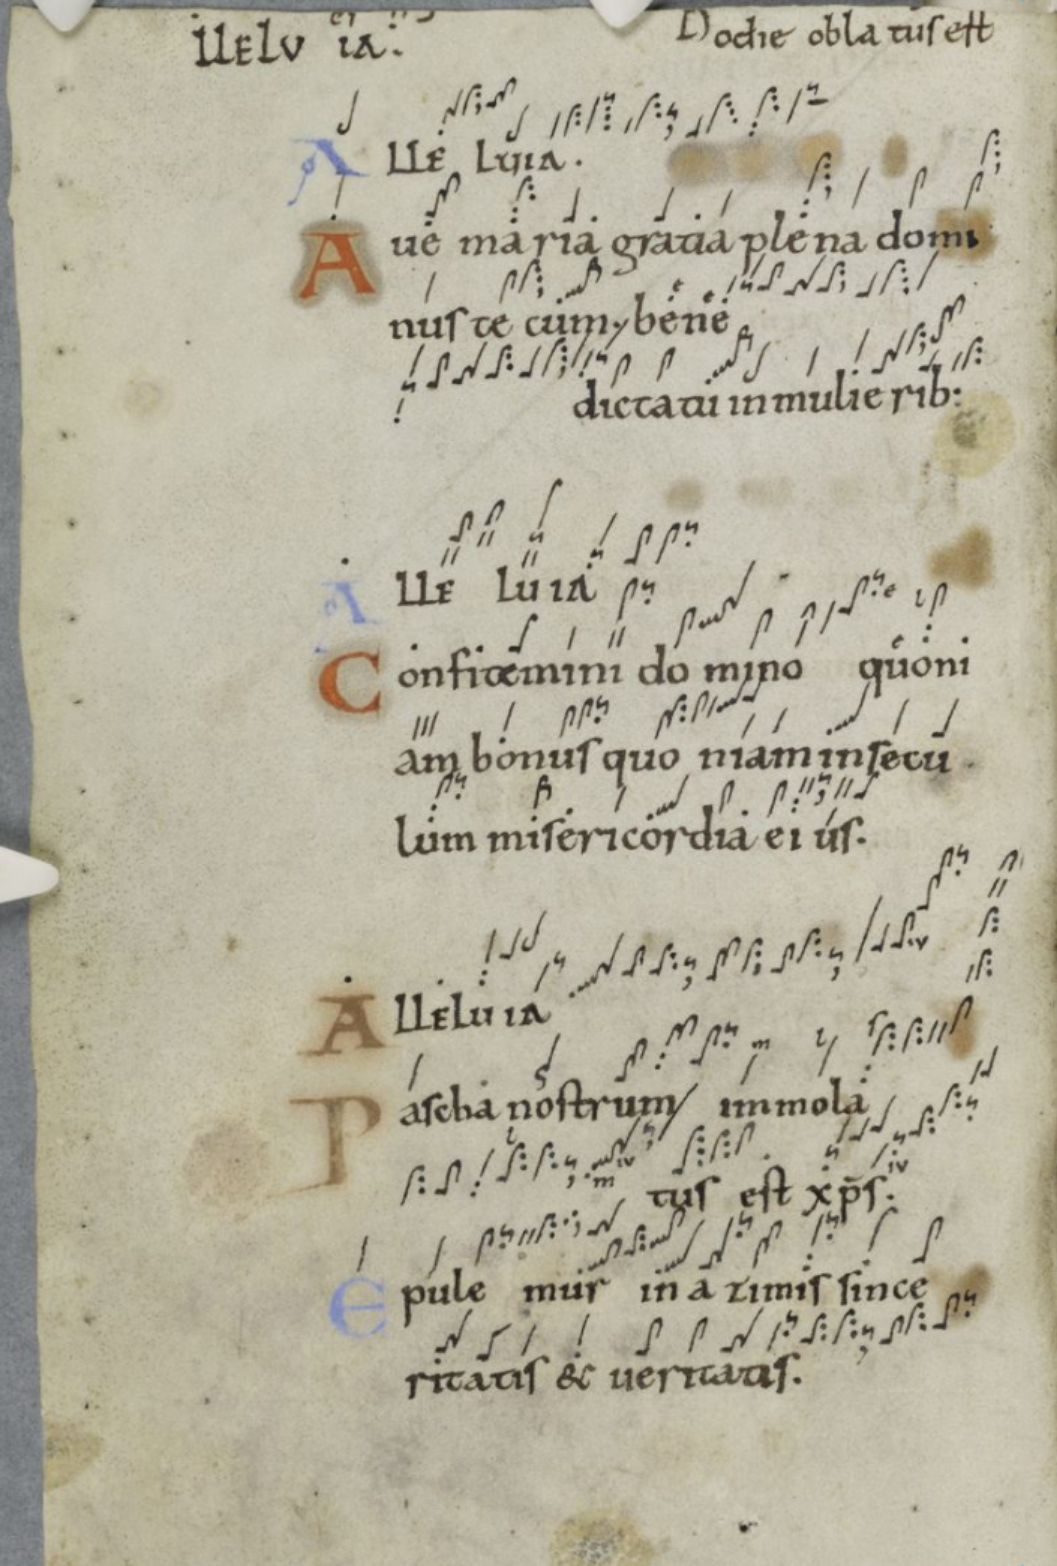 LLELV IA. Hodie oblatus est
ALLE LUIA.
Aue maria gratia plena domi
nus te cum, bene
dicta tu in mulierib:
ALLE LUIA
Confitemini domino quoni
am bonus quoniam in secu
lum misericordia eius.
ALLELUIA
Pascha nostrum immola
tus est xp̄s.
Epulemur in azimis since
ritatis & ueritatis.